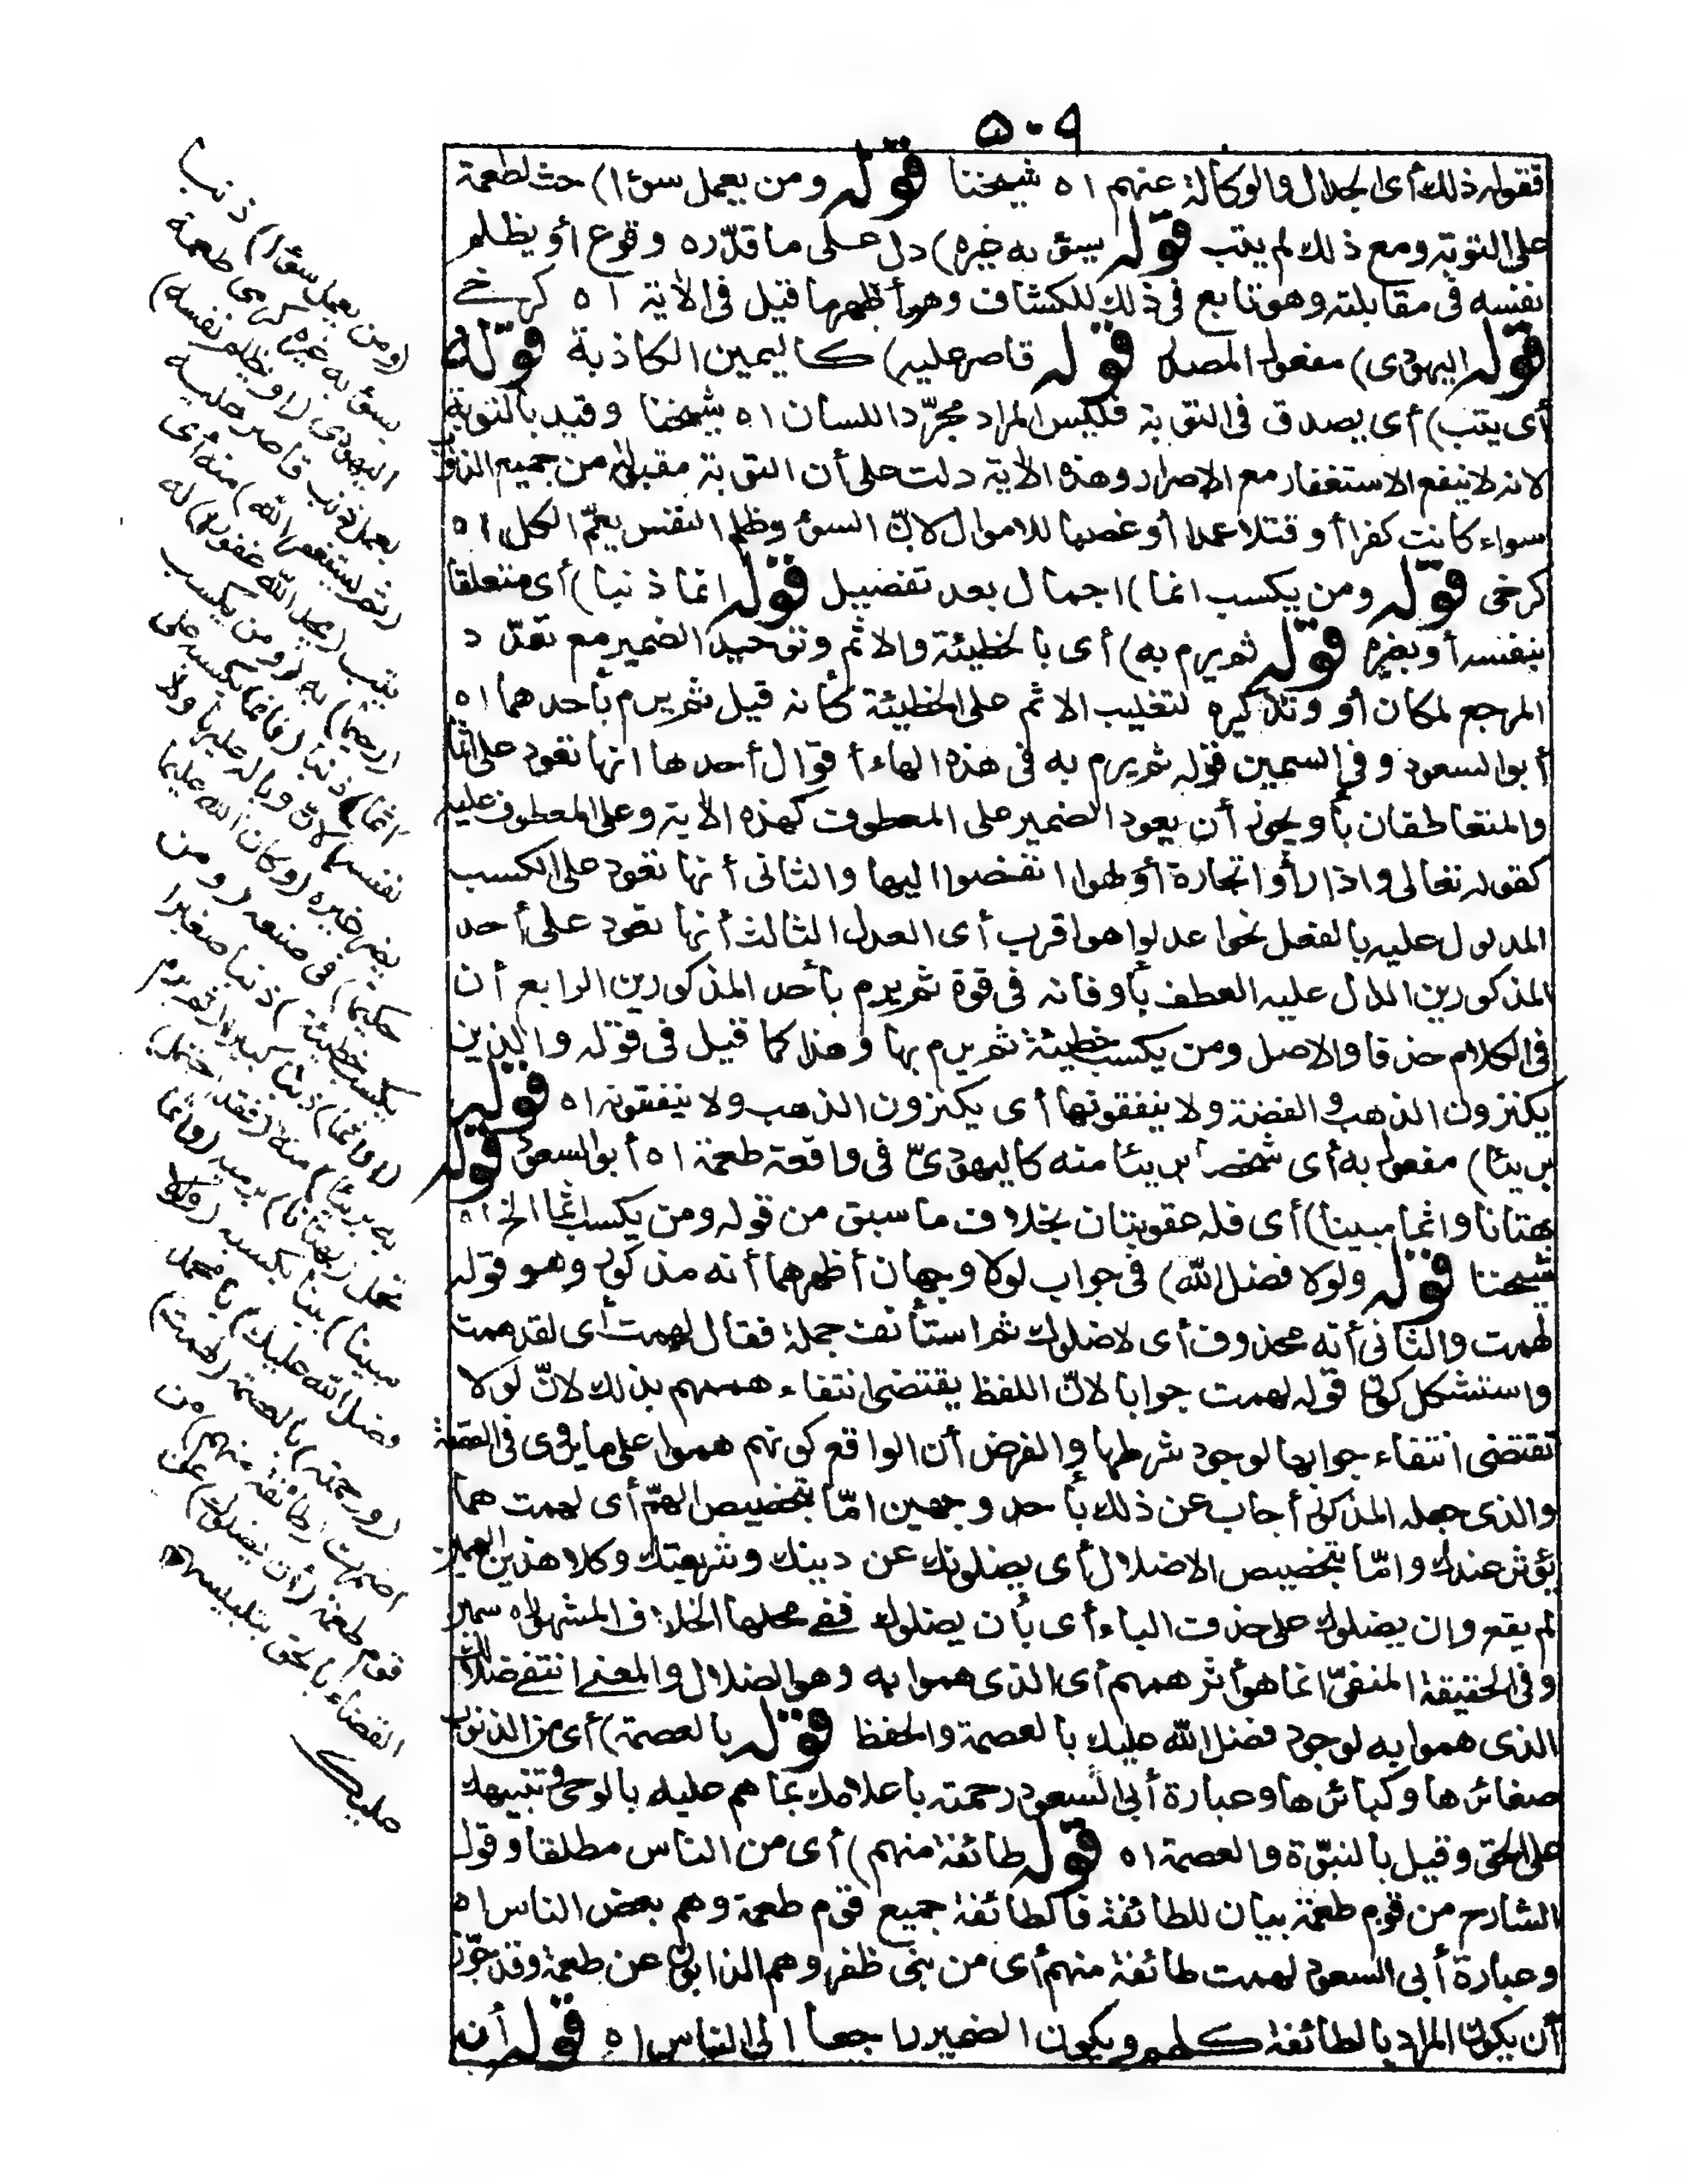 ٥٠٩
فقوله ذلك أى الجدال والوكالة عنهم ا ه شيخنا قوله ومن يعمل سوٓا) حث لطعمة
على التوبة ومع ذلك لم يتب قوله يسؤ به غيره) دل على ما قدّره وقوع أو يظلم
نفسه فى مقابلته وهو تابع فى ذلك للكشاف وهو أظهر ما قيل فى الآية ا ه كرخى
قوله اليهودى) مفعول المصدر قوله قاصر عليه) كاليمين الكاذبة قوله
أى يتب) أى يصدق فى التوبة فليس المراد مجرّد اللسان ا ه شيخنا وقيد بالتوبة
لانه لا ينفع الاستغفار مع الاصرار وهذه الآية دلت على أن التوبة مقبولة من جميع الذنوب
سواء كانت كفرا أو قتلا عمدا أو غصبا للاموال لانّ السوٓ وظلم النفس يعمّ الكل ا ه
كرخى قوله ومن يكسب اثما) اجمال بعد تفصيل قوله اثما ذنبا) أى متعلقا
بنفسه أو بغيره قوله ثم يرم به) أى بالخطيئة والاثم وتوحيد الضمير مع تعدّد
المرجع لمكان أو وتذكيره لتغليب الاثم على الخطيئة كأنه قيل ثم يرم بأحدهما ا ه
أبوالسعود وفى السمين قوله ثم يرم به فى هذه الهاء أقوال أحدها انها تعود على اثما
والمتعاطفان بأو يجوز أن يعود الضمير على المعطوف كهذه الآية وعلى المعطوف عليه
كقوله تعالى واذا رأوا تجارة أو لهوا انفضوا اليها والثانى أنها تعود على الكسب
المدلول عليه بالفعل نحو اعدلوا هو اقرب أى العدل الثالث أنها تعود على أحد
المذكورين الدال عليه العطف بأو فانه فى قوة ثم يرم بأحد المذكورين الرابع أن
فى الكلام حذفا والاصل ومن يكسب خطيئة ثم يرم بها وهذا كما قيل فى قوله والذين
يكنزون الذهب والفضة ولا ينفقونها أى يكنزون الذهب ولا ينفقونه ا ه قوله
بريئا) مفعول به أى شخصا بريئا منه كاليهودىّ فى واقعة طعمة ا ه أبوالسعود قوله
بهتانا واثما مبينا) أى فله عقوبتان بخلاف ما سبق من قوله ومن يكسب اثما الخ ا ه
شيخنا قوله ولولا فضل الله) فى جواب لولا وجهان أظهرهما أنه مذكور وهو قوله
لهمت والثانى أنه محذوف أى لاضلوك ثم استأنف جملة فقال لهمت أى لقد همت
واستشكل كون قوله لهمت جوابا لانّ اللفظ يقتضى انتفاء همهم بذلك لانّ لولا
تقتضى انتفاء جوابها لوجود شرطها والفرض أن الواقع كونهم هموا على ما يروى فى القصة
والذى جعله المذكور أجاب عن ذلك بأحد وجهين امّا بتخصيص الهمّ أى لهمت هما
يؤثر عندك وامّا بتخصيص الاضلال أى يضلونك عن دينك وشريعتك وكلا هذين الهمين
لم يقع وان يضلوك على حذف الباء أى بأن يضلوك ففى محلها الخلاف المشهور ا ه سمين
وفى الحقيقة المنفىّ انما هو أثر همهم أى الذى هموا به وهو الضلال والمعنى انتفى ضلالك
الذى هموا به لوجود فضل الله عليك بالعصمة والحفظ قوله بالعصمة) أى من الذنوب
صغائرها وكبائرها وعبارة أبى السعود رحمته باعلامك بما هم عليه بالوحى وتنبيهك
على الحق وقيل بالنبوّة والعصمة ا ه قوله طائفة منهم) أى من الناس مطلقا وقول
الشارح من قوم طعمة بيان للطائفة فالطائفة جميع قوم طعمة وهم بعض الناس ا ه
وعبارة أبى السعود لهمت طائفة منهم أى من بنى ظفر وهم الذابون عن طعمة وقد جوّز
أن يكون المراد بالطائفة كلهم ويكون الضمير راجعا الى الناس ا ه قوله أن
(ومن يعمل سوٓا) ذنبا
يسؤ به غيره كرمى طعمة
اليهودى (أو يظلم نفسه)
بعمل ذنب قاصر عليه
(ثم يستغفر الله) منه أى
يتب (يجد الله غفورا) له
(رحيما) به (ومن يكسب
اثما) ذنبا (فانما يكسبه على
نفسه) لانّ وباله عليها ولا
يضر غيره (وكان الله عليما
حكيما) فى صنعه (ومن
يكسب خطيئة) ذنبا صغيرا
(أو اثما) ذنبا كبيرا (ثم يرم
به بريئا) منه (فقد احتمل)
تحمل (بهتانا) برميه (واثما
مبينا) بينا بكسبه (ولولا
فضل الله عليك) يا محمد
(ورحمته) بالعصمة (لهمت)
اضمرت (طائفة منهم) من
قوم طعمة (أن يضلوك) عن
القضاء بالحق بتلبيسهم
عليك